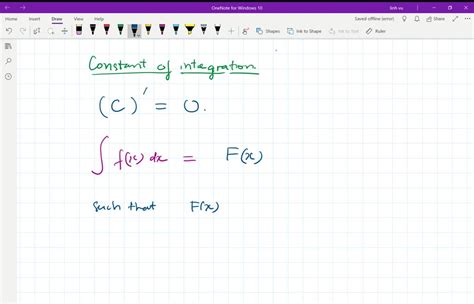 OneNote for Windows 10
linh vu
Home Insert Draw View Help
Saved offline (error) Share
Shapes Ink to Shape Ink to Text Ruler
Constant of integration
(C)' = 0.
∫ f(x) dx = F(x)
such that F(x)